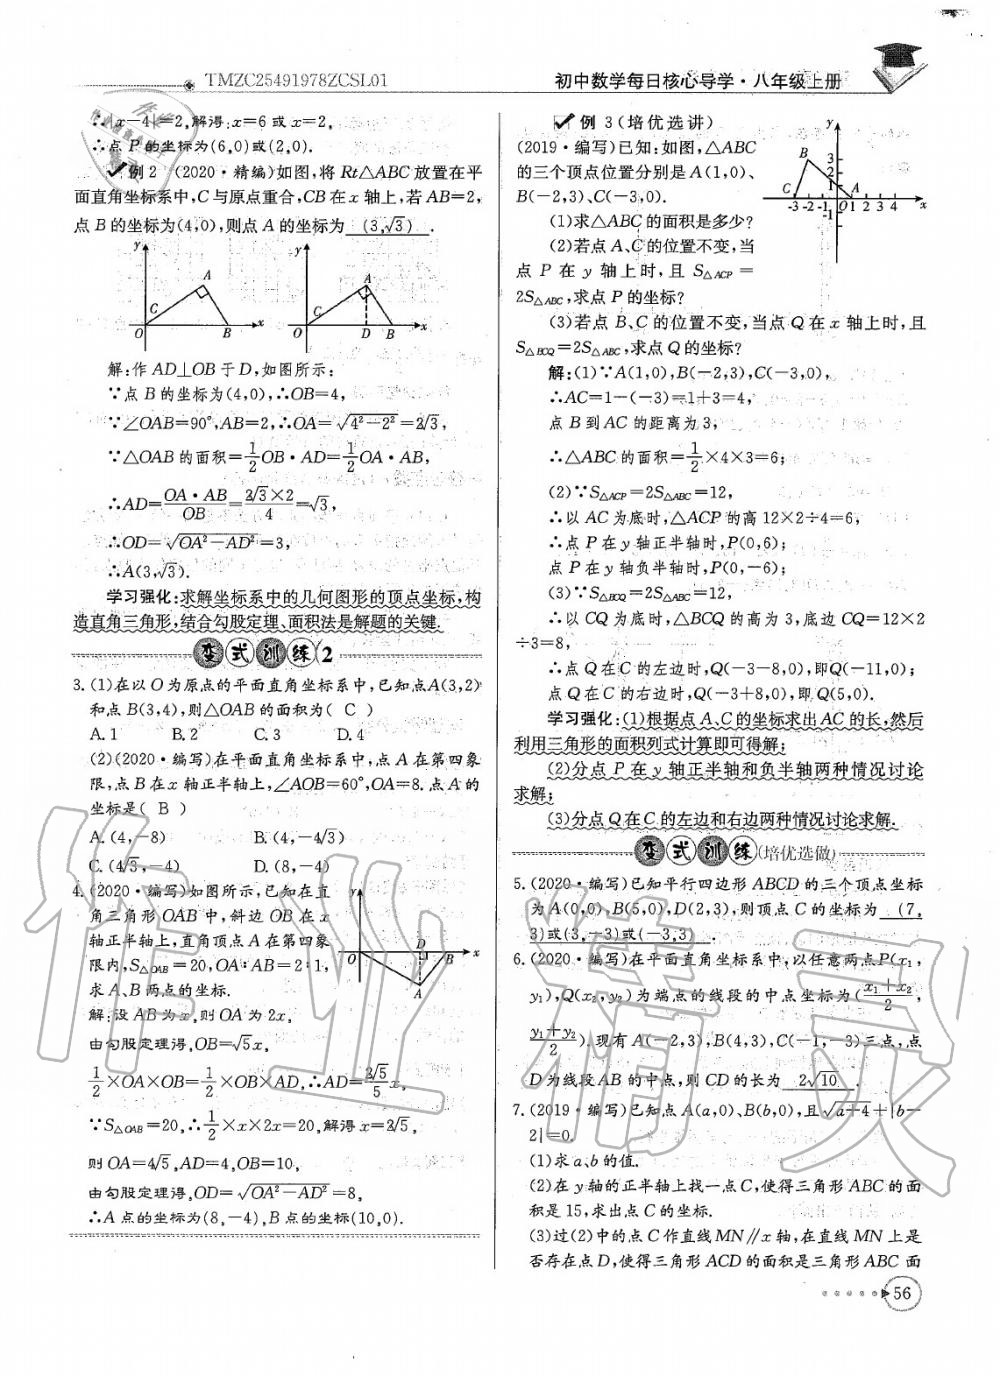 TMZC25491978ZCSL01
初中数学每日核心导学·八年级上册
∴|x−4|=2,解得:x=6或x=2,
∴点P的坐标为(6,0)或(2,0).
例2 (2020·精编)如图,将Rt△ABC放置在平
面直角坐标系中,C与原点重合,CB在x轴上,若AB=2,
点B的坐标为(4,0),则点A的坐标为 (3,√3) .
y A C O B x
y A C O D B x
解:作AD⊥OB于D,如图所示:
∵点B的坐标为(4,0),∴OB=4,
∵∠OAB=90°,AB=2,∴OA=√(4²−2²)=2√3,
∵△OAB的面积=1/2OB·AD=1/2OA·AB,
∴AD=OA·AB/OB=2√3×2/4=√3,
∴OD=√(OA²−AD²)=3,
∴A(3,√3).
学习强化:求解坐标系中的几何图形的顶点坐标,构
造直角三角形,结合勾股定理、面积法是解题的关键.
变式训练2
3.(1)在以O为原点的平面直角坐标系中,已知点A(3,2)
和点B(3,4),则△OAB的面积为( C )
A.1 B.2 C.3 D.4
(2)(2020·编写)在平面直角坐标系中,点A在第四象
限,点B在x轴正半轴上,∠AOB=60°,AO=8.点A的
坐标是( B )
A.(4,−8) B.(4,−4√3)
C.(4√3,−4) D.(8,−4)
4.(2020·编写)如图所示,已知在直
角三角形OAB中,斜边OB在x
轴正半轴上,直角顶点A在第四象
限内,S△OAB=20,OA∶AB=2∶1,
求A、B两点的坐标.
y O D B x A
解:设AB为x,则OA为2x,
由勾股定理得,OB=√5x,
1/2×OA×OB=1/2×OB×AD,∴AD=2√5/5x,
∵S△OAB=20,∴1/2×x×2x=20,解得x=2√5,
则OA=4√5,AD=4,OB=10,
由勾股定理得,OD=√(OA²−AD²)=8,
∴A点的坐标为(8,−4),B点的坐标(10,0).
例3(培优选讲)
(2019·编写)已知:如图,△ABC
的三个顶点位置分别是A(1,0)、
B(−2,3)、C(−3,0).
(1)求△ABC的面积是多少?
(2)若点A、C的位置不变,当
点P在y轴上时,且S△ACP=
2S△ABC,求点P的坐标?
y B 3 2 1 C A -3 -2 -1 O 1 2 3 4 x -1
(3)若点B、C的位置不变,当点Q在x轴上时,且
S△BCQ=2S△ABC,求点Q的坐标?
解:(1)∵A(1,0),B(−2,3),C(−3,0),
∴AC=1−(−3)=1+3=4,
点B到AC的距离为3,
∴△ABC的面积=1/2×4×3=6;
(2)∵S△ACP=2S△ABC=12,
∴以AC为底时,△ACP的高12×2÷4=6,
∴点P在y轴正半轴时,P(0,6);
点P在y轴负半轴时,P(0,−6);
(3)∵S△BCQ=2S△ABC=12,
∴以CQ为底时,△BCQ的高为3,底边CQ=12×2
÷3=8,
∴点Q在C的左边时,Q(−3−8,0),即Q(−11,0);
点Q在C的右边时,Q(−3+8,0),即Q(5,0).
学习强化:(1)根据点A、C的坐标求出AC的长,然后
利用三角形的面积列式计算即可得解;
(2)分点P在y轴正半轴和负半轴两种情况讨论
求解;
(3)分点Q在C的左边和右边两种情况讨论求解.
变式训练(培优选做)
5.(2020·编写)已知平行四边形ABCD的三个顶点坐标
为A(0,0)、B(5,0)、D(2,3),则顶点C的坐标为 (7,
3)或(3,−3)或(−3,3) .
6.(2020·编写)在平面直角坐标系中,以任意两点P(x₁,
y₁),Q(x₂,y₂)为端点的线段的中点坐标为((x₁+x₂)/2,
(y₁+y₂)/2).现有A(−2,3),B(4,3),C(−1,−3)三点,点
D为线段AB的中点,则CD的长为 2√10 .
7.(2019·编写)已知点A(a,0)、B(b,0),且√(a+4)+|b−
2|=0.
(1)求a、b的值.
(2)在y轴的正半轴上找一点C,使得三角形ABC的面
积是15,求出点C的坐标.
(3)过(2)中的点C作直线MN∥x轴,在直线MN上是
否存在点D,使得三角形ACD的面积是三角形ABC面
56
作业精灵